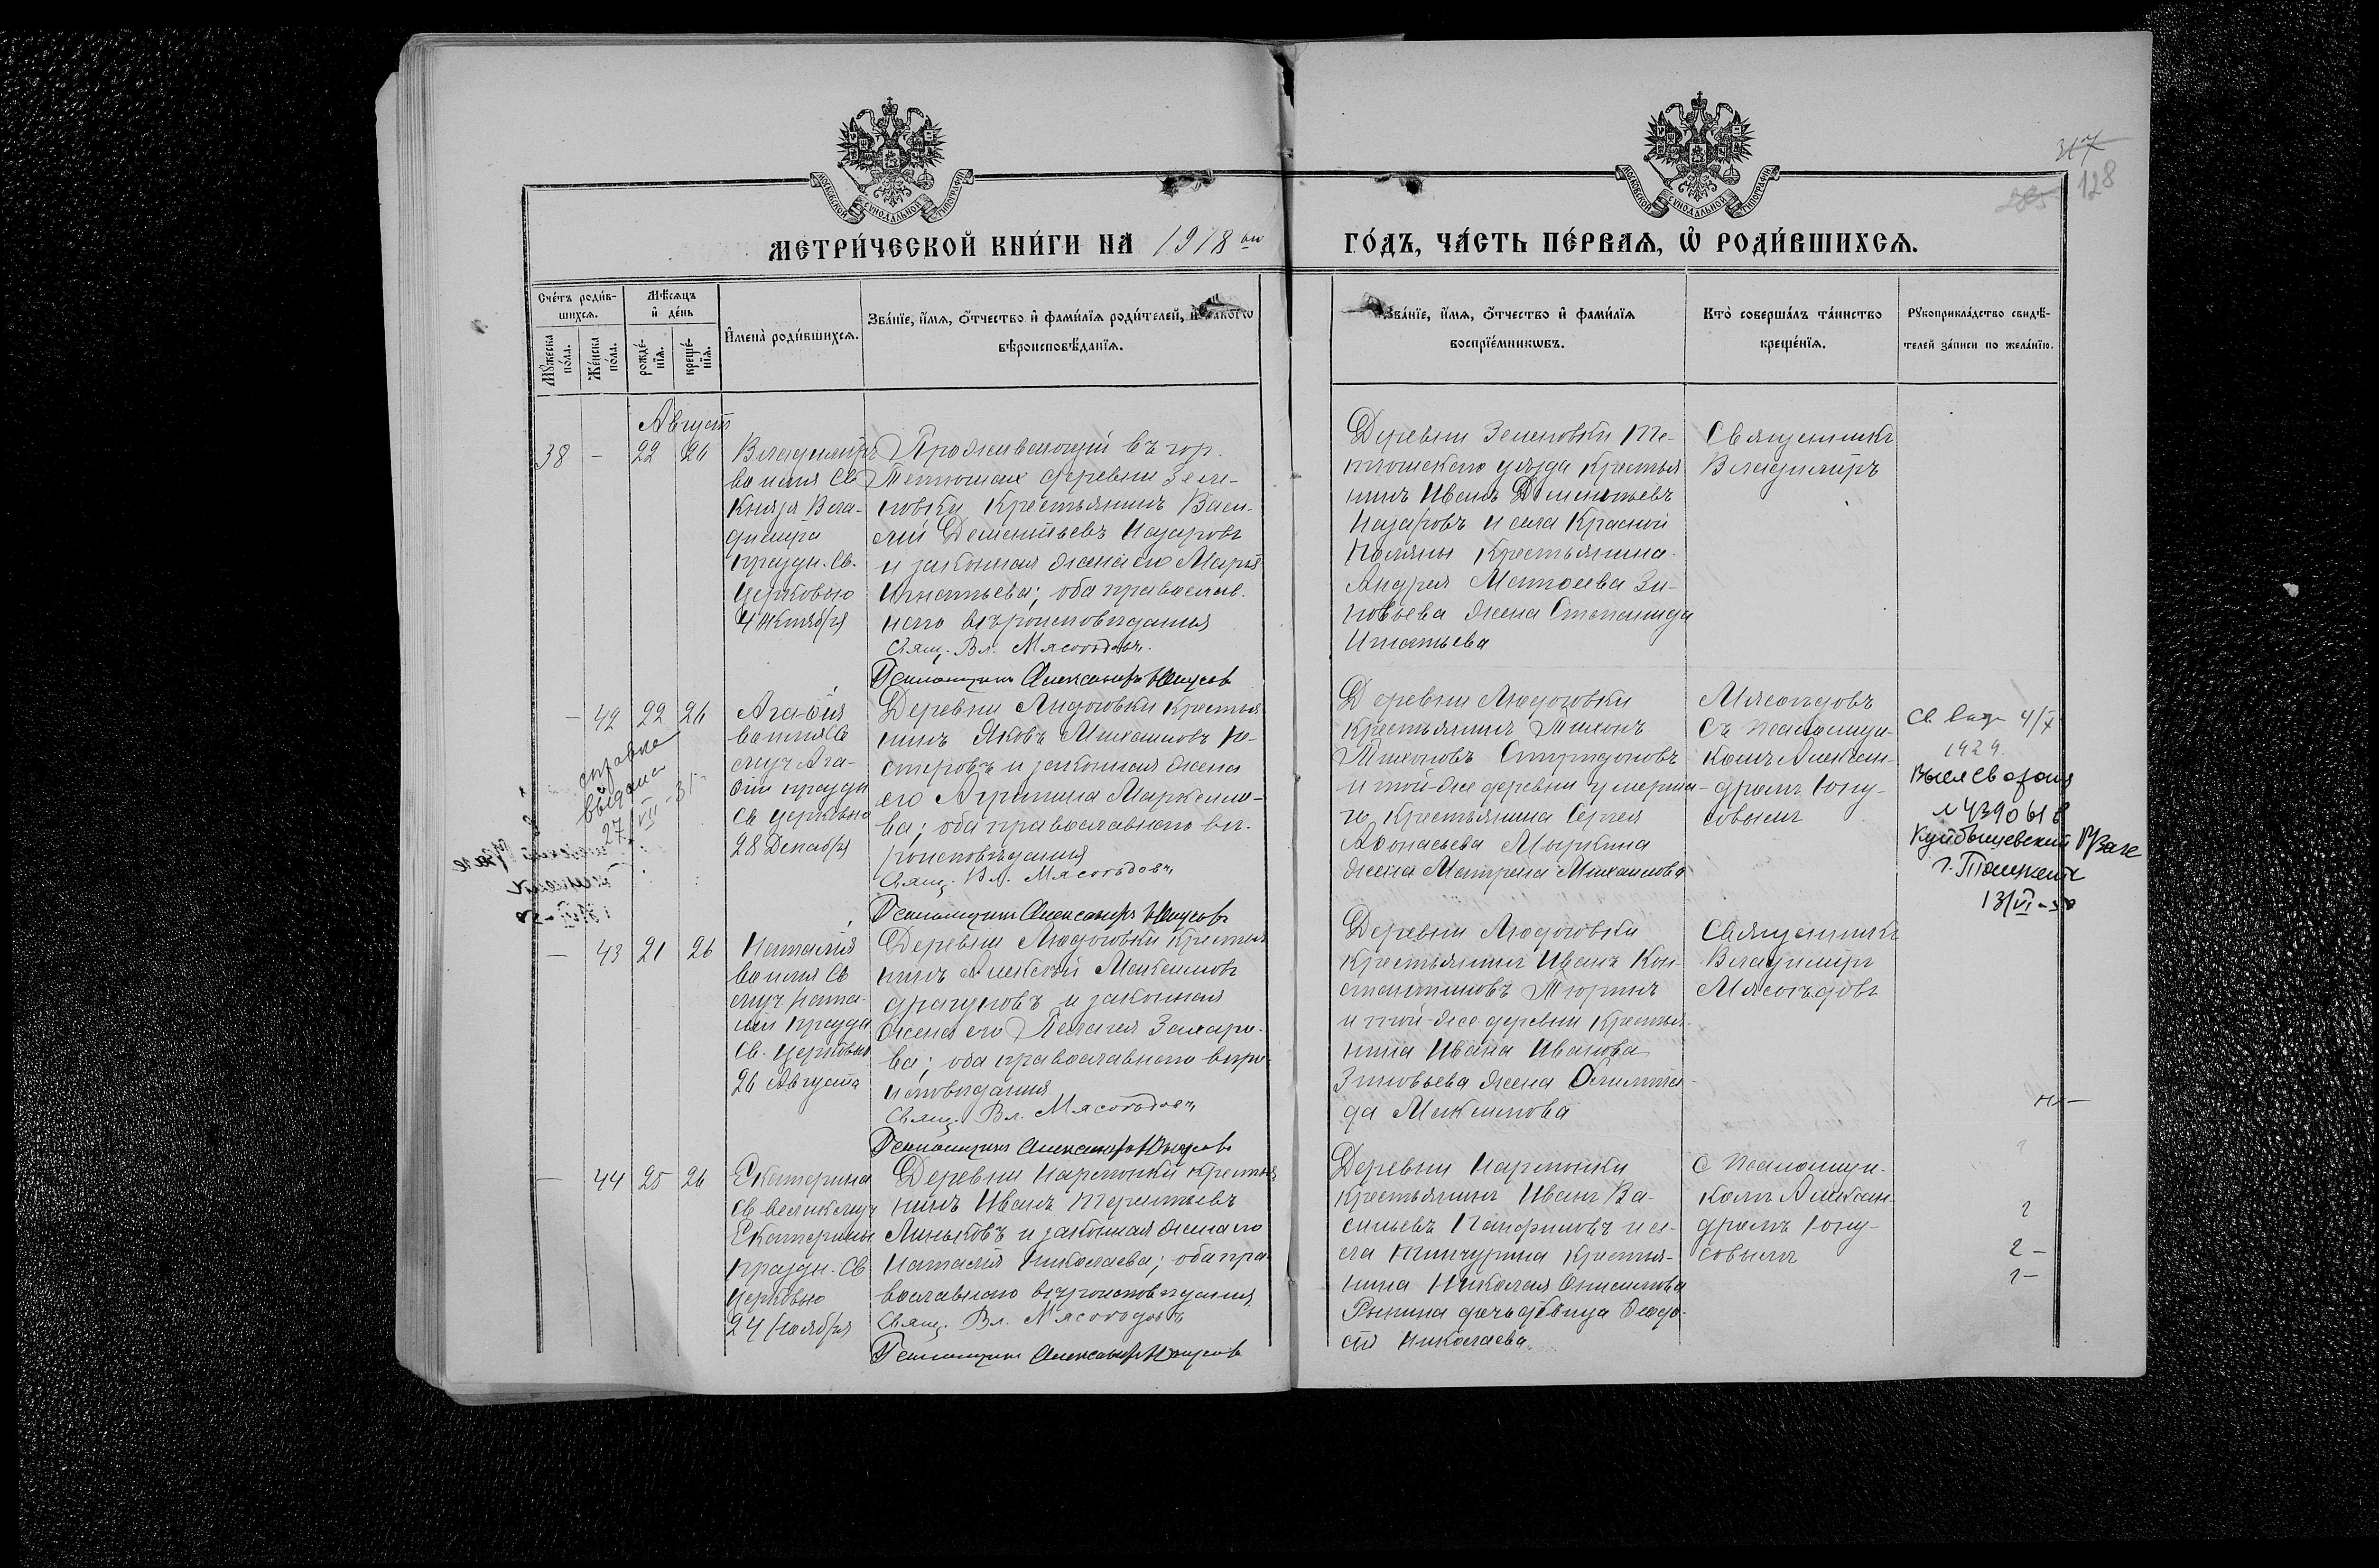 317
128
МЕТРИ́ЧЕСКОЙ КНИ́ГИ НА 1918 ый ГО́ДЪ, ЧА́СТЬ ПЕ́РВАЯ, Ѽ РОДИ́ВШИХСЯ.
Сче́тъ роди́в-
шихся.
Мꙋжеска по́ла.
Же́нска по́ла.
Мѣ́сяцъ и҆ де́нь
рожде́-нїя.
креще́-нїя.
И҆мена̀ роди́вшихся.
Зва́нїе, и҆́мя, ѻ҆́тчество и҆ фами́лїя роди́телей, и҆ како́гѡ
вѣроисповѣ́данїя.
Зва́нїе, и҆́мя, ѻ҆́тчество и҆ фами́лїя
воспрїе́мникѡвъ.
Кто̀ соверша́лъ та́инство
креще́нїя.
Рꙋкоприкла́дство свидѣ́-
телей за́писи по жела́нїю.
Августъ
38 - 22 26
Владимиръ
во имя Св
Князя Вла-
димира
праздн. Св.
Церковью
4 Октября
Проживающій въ гор.
Тетюшахъ деревни Зеле-
новки Крестьянинъ Васи-
лій Дементьевъ Назаровъ
и законная жена его Марія
Игнатьева; оба православ.
наго вѣроисповѣданія
Свящ. Вл. Мясоѣдовъ.
Псаломщикъ Александръ Юнусовъ
Деревни Зеленовки Те-
тюшскаго уѣзда Крестья
нинъ Иванъ Дементьевъ
Назаровъ и села Красной
Поляны Крестьянина
Андрея Матѳеева Зи-
новьева жена Степанида
Игнатьева
Священникъ
Владимиръ
- 42 22 26
Агаѳія
во имя Св
муч Ага-
ѳіи праздн
Св церковью
28 Декабря
Деревни Людоговки крестья
нинъ Яковъ Михаиловъ Не-
стеровъ и законная жена
его Агрипина Маркело-
ва; оба православнаго вѣ-
роисповѣданія
Свящ. Вл. Мясоѣдовъ
Псаломщикъ Александръ Юнусовъ
Деревни Людоговки
крестьянинъ Тихонъ
Тихоновъ Спиридоновъ
и той-же деревни умерша-
го Крестьянина Сергея
Аѳонасьева Мыркина
жена Матрена Михаилова
Мясоѣдовъ
съ псаломщи-
комъ Алексан-
дромъ Юну-
совымъ
справка
выдана
27/VII-31
Св выд 4/X
1929.
№ 439061
Куйбышевский Рзагс
г. Ташкент
13/VI-50
- 43 21 26
Наталія
во имя Св
муч Ната-
ліи праздн
Св. церковью
26 Августа
Деревни Людоговки крестья
нинъ Алексѣй Максимовъ
Драгуновъ и законная
жена его Пелагея Захаро-
ва; оба православнаго вѣро-
исповѣданія
Свящ. Вл. Мясоѣдовъ
Псаломщикъ Александръ Юнусовъ
Деревни Людоговки
крестьянинъ Иванъ Кон-
стантиновъ Тюринъ
и той-же деревни крестья-
нина Ивана Иванова
Зиновьева жена Олимпіа-
да Максимова
Священникъ
Владимиръ
Мясоѣдовъ
- 44 25 26
Екатерина
Св великомуч
Екатерины
праздн. Св
церковью
24 Ноября
Деревни Нармонки крестья
нинъ Иванъ Терентьевъ
Линьковъ и законная жена его
Наталія Николаева; оба пра
вославнаго вѣроисповѣданія
Свящ. Вл. Мясоѣдовъ
Псаломщикъ Александръ Юнусовъ
Деревни Нармонки
крестьянинъ Иванъ Ва-
сильевъ Панфиловъ и се-
ла Кинчурина крестья-
нина Николая Онисимова
Рынина дочь дѣвица Ѳеодо-
сія Николаева.
С псаломщи-
комъ Алексан-
дромъ Юну-
совымъ